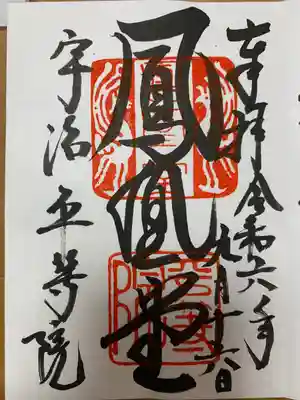 奉拝 令和六年
九月十六日
鳳凰堂
宇治平等院